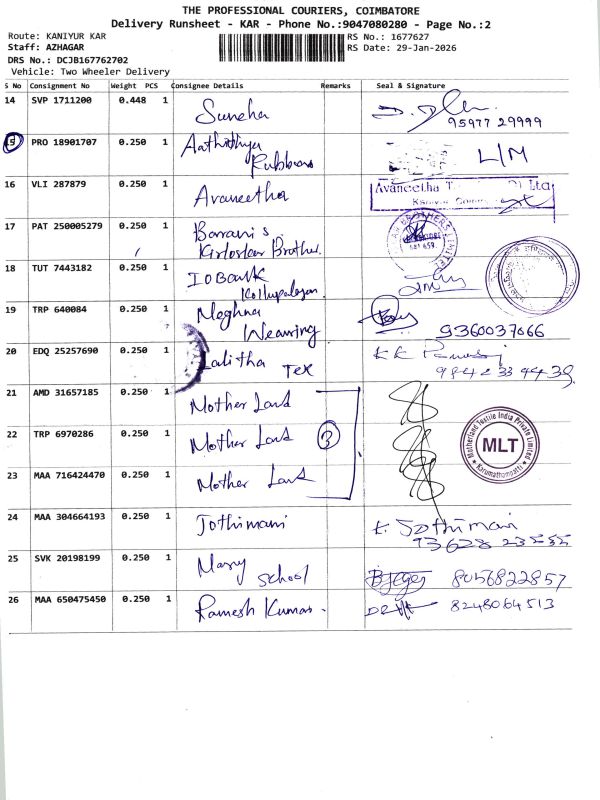 THE PROFESSIONAL COURIERS, COIMBATORE
Delivery Runsheet - KAR - Phone No.:9047080280 - Page No.:2
Route: KANIYUR KAR
RS No.: 1677627
Staff: AZHAGAR
RS Date: 29-Jan-2026
DRS No.: DCJB167762702
Vehicle: Two Wheeler Delivery
S No Consignment No Weight PCS Consignee Details Remarks Seal & Signature
14 SVP 1711200 0.448 1 Suneha
95977 29999
15 PRO 18901707 0.250 1 Aathithya L/M
16 VLI 287879 0.250 1 Avaneetha
Avaneetha
17 PAT 250005279 0.250 1 Barani s
Kirloskar Brother
18 TUT 7443182 0.250 1 IOBank
19 TRP 640084 0.250 1 Meghna
Weaving 9360037066
20 EDQ 25257690 0.250 1 Lalitha
Tex
21 AMD 31657185 0.250 1 Mother Land
22 TRP 6970286 0.250 1 Mother Land 3
Motherland Textile India Private Limited
MLT
Karumathampatti
23 MAA 716424470 0.250 1 Mother Land
24 MAA 304664193 0.250 1 Jothimani K. Jothimani
25 SVK 20198199 0.250 1 Mary
School 8056822857
26 MAA 650475450 0.250 1 Ramesh Kumar. 8248064513